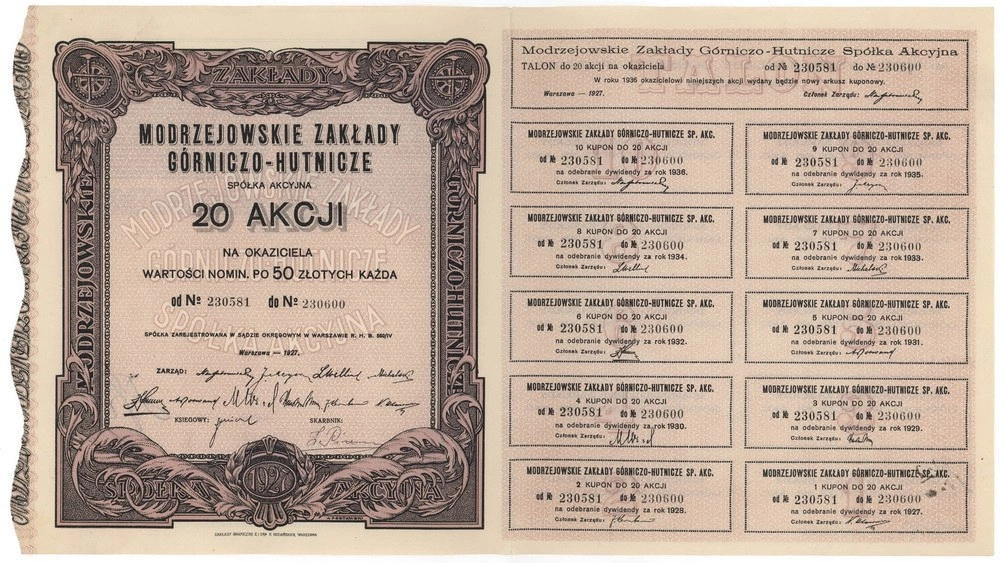 ZAKŁADY
MODRZEJOWSKIE
GÓRNICZO-HUTNICZE
MODRZEJOWSKIE ZAKŁADY
GÓRNICZO-HUTNICZE
SPÓŁKA AKCYJNA
20 AKCJI
NA OKAZICIELA
WARTOŚCI NOMIN. PO 50 ZŁOTYCH KAŻDA
od № 230581 do № 230600
SPÓŁKA ZAREJESTROWANA W SĄDZIE OKRĘGOWYM W WARSZAWIE R. H. B. 560/IV
Warszawa — 1927.
ZARZĄD:
KSIĘGOWY: SKARBNIK:
1927
SPÓŁKA AKCYJNA
MODRZEJOWSKIE ZAKŁADY
GÓRNICZO-HUTNICZE
SPÓŁKA AKCYJNA
Modrzejowskie Zakłady Górniczo-Hutnicze Spółka Akcyjna
TALON do 20 akcji na okaziciela od № 230581 do № 230600
W roku 1936 okazicielowi niniejszych akcji wydany będzie nowy arkusz kuponowy.
Warszawa — 1927. Członek Zarządu:
MODRZEJOWSKIE ZAKŁADY GÓRNICZO-HUTNICZE SP. AKC.
10 KUPON DO 20 AKCJI
od № 230581 do № 230600
na odebranie dywidendy za rok 1936.
Członek Zarządu:
MODRZEJOWSKIE ZAKŁADY GÓRNICZO-HUTNICZE SP. AKC.
9 KUPON DO 20 AKCJI
od № 230581 do № 230600
na odebranie dywidendy za rok 1935.
Członek Zarządu:
MODRZEJOWSKIE ZAKŁADY GÓRNICZO-HUTNICZE SP. AKC.
8 KUPON DO 20 AKCJI
od № 230581 do № 230600
na odebranie dywidendy za rok 1934.
Członek Zarządu:
MODRZEJOWSKIE ZAKŁADY GÓRNICZO-HUTNICZE SP. AKC.
7 KUPON DO 20 AKCJI
od № 230581 do № 230600
na odebranie dywidendy za rok 1933.
Członek Zarządu:
MODRZEJOWSKIE ZAKŁADY GÓRNICZO-HUTNICZE SP. AKC.
6 KUPON DO 20 AKCJI
od № 230581 do № 230600
na odebranie dywidendy za rok 1932.
Członek Zarządu:
MODRZEJOWSKIE ZAKŁADY GÓRNICZO-HUTNICZE SP. AKC.
5 KUPON DO 20 AKCJI
od № 230581 do № 230600
na odebranie dywidendy za rok 1931.
Członek Zarządu:
MODRZEJOWSKIE ZAKŁADY GÓRNICZO-HUTNICZE SP. AKC.
4 KUPON DO 20 AKCJI
od № 230581 do № 230600
na odebranie dywidendy za rok 1930.
Członek Zarządu:
MODRZEJOWSKIE ZAKŁADY GÓRNICZO-HUTNICZE SP. AKC.
3 KUPON DO 20 AKCJI
od № 230581 do № 230600
na odebranie dywidendy za rok 1929.
Członek Zarządu:
MODRZEJOWSKIE ZAKŁADY GÓRNICZO-HUTNICZE SP. AKC.
2 KUPON DO 20 AKCJI
od № 230581 do № 230600
na odebranie dywidendy za rok 1928.
Członek Zarządu:
MODRZEJOWSKIE ZAKŁADY GÓRNICZO-HUTNICZE SP. AKC.
1 KUPON DO 20 AKCJI
od № 230581 do № 230600
na odebranie dywidendy za rok 1927.
Członek Zarządu: